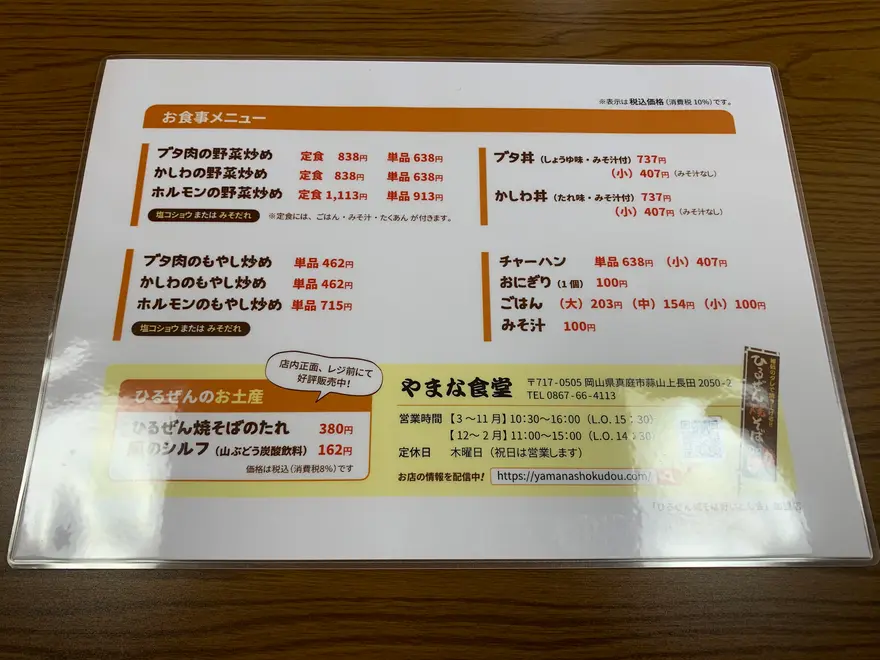 ※表示は税込価格(消費税10%)です。
お食事メニュー
ブタ肉の野菜炒め 定食 838円 単品 638円
かしわの野菜炒め 定食 838円 単品 638円
ホルモンの野菜炒め 定食 1,113円 単品 913円
塩コショウ または みそだれ ※定食には、ごはん・みそ汁・たくあん が付きます。
ブタ丼(しょうゆ味・みそ汁付) 737円
(小) 407円(みそ汁なし)
かしわ丼(たれ味・みそ汁付) 737円
(小) 407円(みそ汁なし)
ブタ肉のもやし炒め 単品 462円
かしわのもやし炒め 単品 462円
ホルモンのもやし炒め 単品 715円
塩コショウ または みそだれ
チャーハン 単品 638円 (小) 407円
おにぎり(1個) 100円
ごはん (大) 203円 (中) 154円 (小) 100円
みそ汁 100円
店内正面、レジ前にて
好評販売中!
ひるぜんのお土産
ひるぜん焼そばのたれ 380円
風のシルフ(山ぶどう炭酸飲料) 162円
価格は税込(消費税8%)です
やまな食堂 〒717-0505 岡山県真庭市蒜山上長田 2050-2
TEL 0867-66-4113
営業時間 【3~11月】10:30~16:00(L.O. 15:30)
【12~2月】11:00~15:00(L.O. 14:30)
定休日 木曜日(祝日は営業します)
お店の情報を配信中! https://yamanashokudou.com/
ひるぜん焼そば